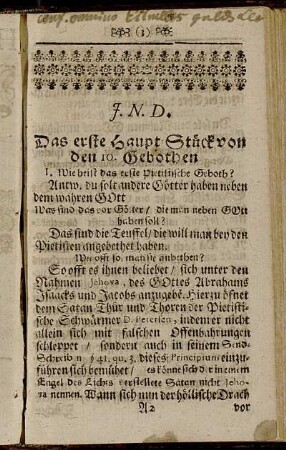 (1)
J. N. D.
Das erste Haupt Stück von
den 10. Gebothen
I. Wie heist das erste Pietistische Geboth?
Antw. du solt andere Götter haben neben
dem wahren GOtt
Was sind das vor Götter / die man neben GOtt
haben soll?
Das sind die Teuffel / die will man bey den
Pietisten angebethet haben.
Wie offt so. man sie anbethen?
So offt es ihnen beliebet / sich unter den
Nahmen Jehova, des GOttes Abrahams
Isaacks und Jacobs anzugebē. Hierzu öfnet
dem Satan Thür und Thoren der Pietisti-
sche Schwärmer D. Petersen, indem er nicht
allein sich mit falschen Offenbahrungen
schleppet / sondern auch in seinem Send-
Schreibn § 41. qu. 3. dieses Principium einzu-
führen sich bemühet / es könne sich der in einem
Engel des Lichts verstellete Satan nicht Jeho-
va nennen. Wann sich nun der höllische Drach
A2 vor